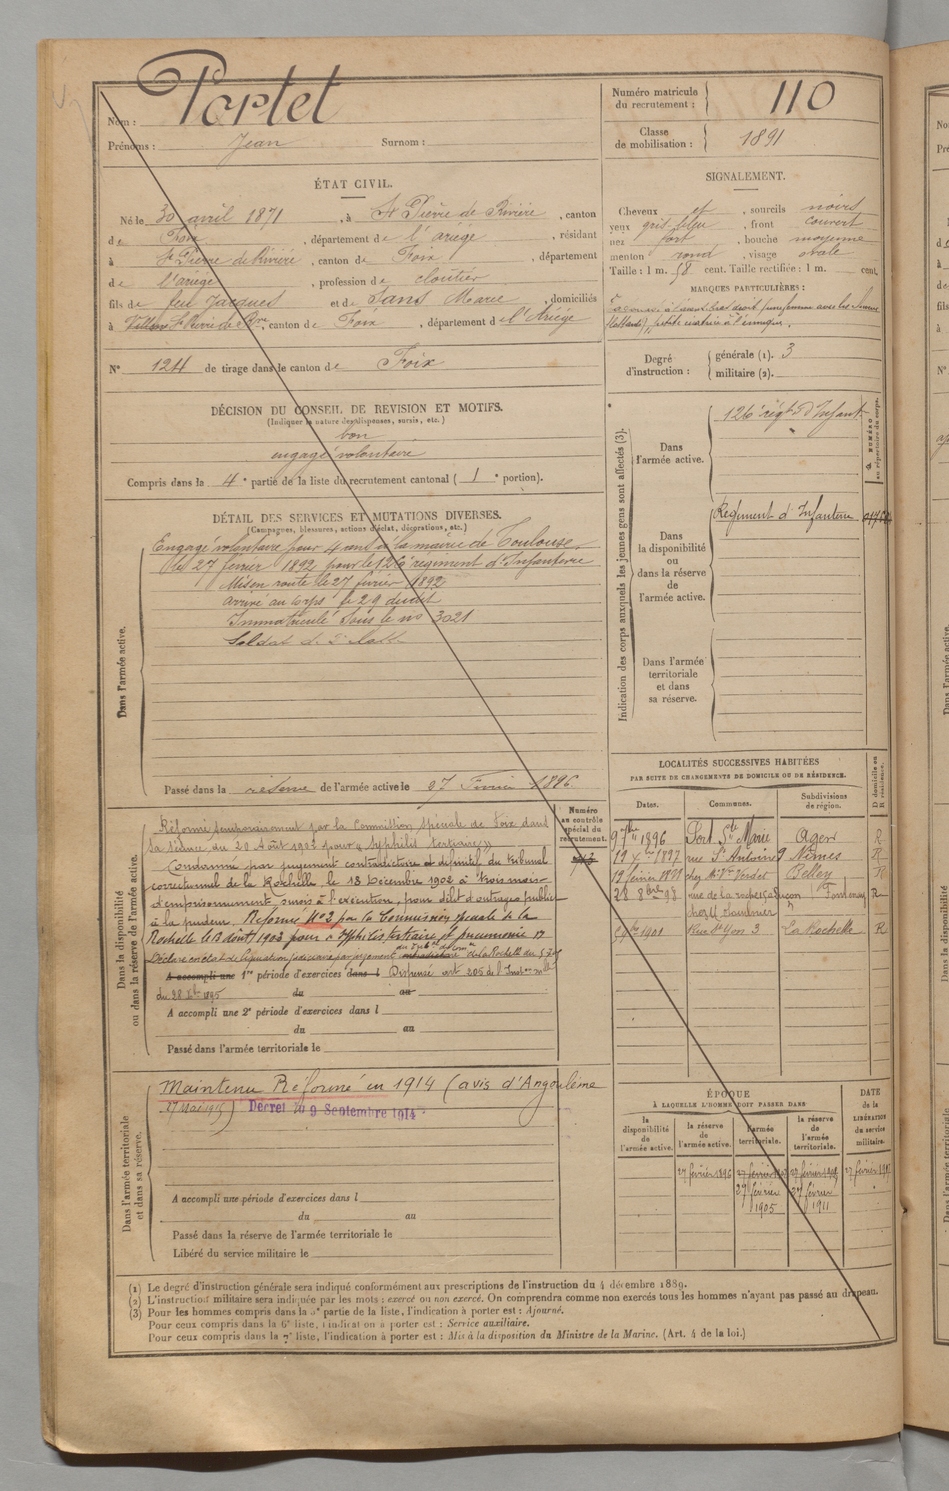 Nom : Portet
Prénoms : Jean Surnom :
ÉTAT CIVIL.
Né le 30 avril 1871, à St Pierre de Rivière, canton
de Foix, département de l'ariège, résidant
à St Pierre de Rivière, canton de Foix, département
de l'ariège, profession de cloutier
fils de feu Jacques et de Sans Marie, domiciliés
à St Pierre de Rre, canton de Foix, département de l'Ariège
No 124 de tirage dans le canton de Foix
DÉCISION DU CONSEIL DE REVISION ET MOTIFS.
(Indiquer la nature des dispenses, sursis, etc.)
bon
engagé volontaire
Compris dans la 4e partie de la liste du recrutement cantonal (1e portion).
DÉTAIL DES SERVICES ET MUTATIONS DIVERSES.
(Campagnes, blessures, actions d'éclat, décorations, etc.)
Dans l'armée active.
Engagé volontaire pour 4 ans à la mairie de Toulouse,
le 27 février 1892 pour le 126e régiment d'Infanterie
Mis en route le 27 février 1892
arrivé au corps le 29 dudit
Immatriculé sous le no 3021
Soldat de 2e
Passé dans la réserve de l'armée active le 27 Février 1896
Dans la disponibilité
ou dans la réserve de l'armée active.
Réformé temporairement par la Commission spéciale de Foix dans
sa séance du 20 Août 1902 pour « syphilis tertiaire »
Condamné par jugement contradictoire et définitif du tribunal
correctionnel de la Rochelle, le 18 Décembre 1902 à trois mois
d'emprisonnement, sursis à l'exécution, pour délit d'outrages publics
à la pudeur. Réformé No 2 par la Commission spéciale de la
Rochelle le 13 août 1903 pour « syphilis tertiaire et pneumonie »
Déclaré en état de liquidation judiciaire par jugement du de la Rochelle du
A accompli une 1re période d'exercices dans l Dispensé art. 205 de l'
du 28 Xbre 1895 du au
A accompli une 2e période d'exercices dans l
du au
Passé dans l'armée territoriale le
Dans l'armée territoriale
et dans sa réserve.
Maintenu Réformé en 1914 (avis d'Angoulême
27 Mai 1915) Décret du 9 Septembre 1914
A accompli une période d'exercices dans l
du au
Passé dans la réserve de l'armée territoriale le
Libéré du service militaire le
Numéro
au contrôle
spécial du
recrutement.
Numéro matricule
du recrutement : 110
Classe
de mobilisation : 1891
SIGNALEMENT.
Cheveux et, sourcils noirs
yeux gris bleu, front couvert
nez fort, bouche moyenne
menton rond, visage ovale
Taille : 1 m. 58 cent. Taille rectifiée : 1 m. cent.
MARQUES PARTICULIÈRES :
à l'avant bras droit
petite cicatrice à
Degré
d'instruction :
générale (1). 3
militaire (2).
Indication des corps auxquels les jeunes gens sont affectés (3).
NUMÉRO
au répertoire du corps.
Dans
l'armée active.
126e régt d'Infant
Dans
la disponibilité
ou
dans la réserve
de
l'armée active.
Régiment d'Infanterie
Dans l'armée
territoriale
et dans
sa réserve.
LOCALITÉS SUCCESSIVES HABITÉES
PAR SUITE DE CHANGEMENTS DE DOMICILE OU DE RÉSIDENCE.
Dates. Communes. Subdivisions
de région. D domicile ou
R résidence.
9 7bre 1896 Port Ste Marie Agen R
19 Xbre 1897 rue St Antoine 9 Nîmes R
12 février 1898 chez Belley R
28 8bre 98 rue de la Fontenay R
1901 Rue St Yon 3 La Rochelle R
ÉPOQUE
À LAQUELLE L'HOMME DOIT PASSER DANS
la
disponibilité
de
l'armée active.
la réserve
de
l'armée active.
l'armée
territoriale.
la réserve
de
l'armée
territoriale.
DATE
de la
LIBÉRATION
du service
militaire.
27 février 1896
27 février 27 février
1905 1911
(1) Le degré d'instruction générale sera indiqué conformément aux prescriptions de l'instruction du 4 décembre 1889.
(2) L'instruction militaire sera indiquée par les mots : exercé ou non exercé. On comprendra comme non exercés tous les hommes n'ayant pas passé au drapeau.
(3) Pour les hommes compris dans la 5e partie de la liste, l'indication à porter est : Ajourné.
Pour ceux compris dans la 6e liste, l'indication à porter est : Service auxiliaire.
Pour ceux compris dans la 7e liste, l'indication à porter est : Mis à la disposition du Ministre de la Marine. (Art. 4 de la loi.)